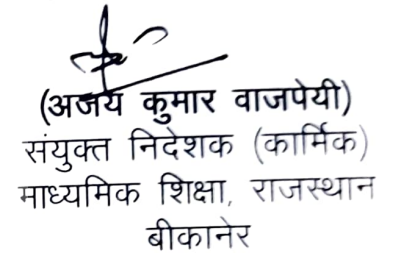 (अजय कुमार वाजपेयी)
संयुक्त निदेशक (कार्मिक)
माध्यमिक शिक्षा, राजस्थान
बीकानेर